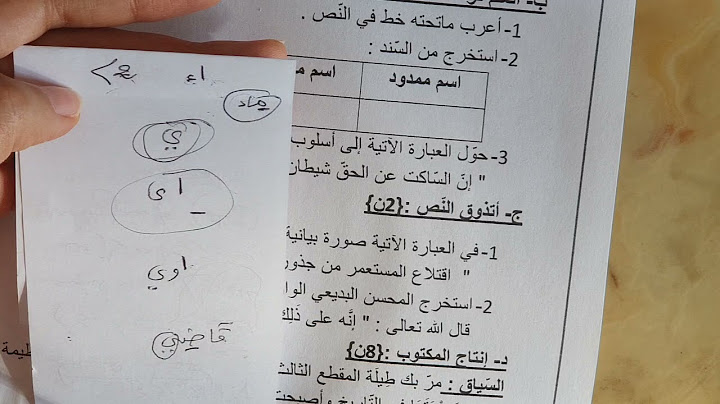 1- أعرب ماتحته خط في النّص .
2- استخرج من السّند :
اسم ممدود
اسم
3- حوّل العبارة الآتية إلى أسلوب
" إنّ السّاكت عن الحقّ شيطان
ج- أتذوق النّص :{2ن}
1- في العبارة الآتية صورة بيانية
" اقتلاع المستعمر من جذور
2- استخرج المحسن البديعي
قال الله تعالى : " إنَّه على ذَلِكَ
د- إنتاج المكتوب :{8ن}
السّياق : مرّ بك طِيلَة المقطع الثالث
اء
ي
اي
اوي
قاضي